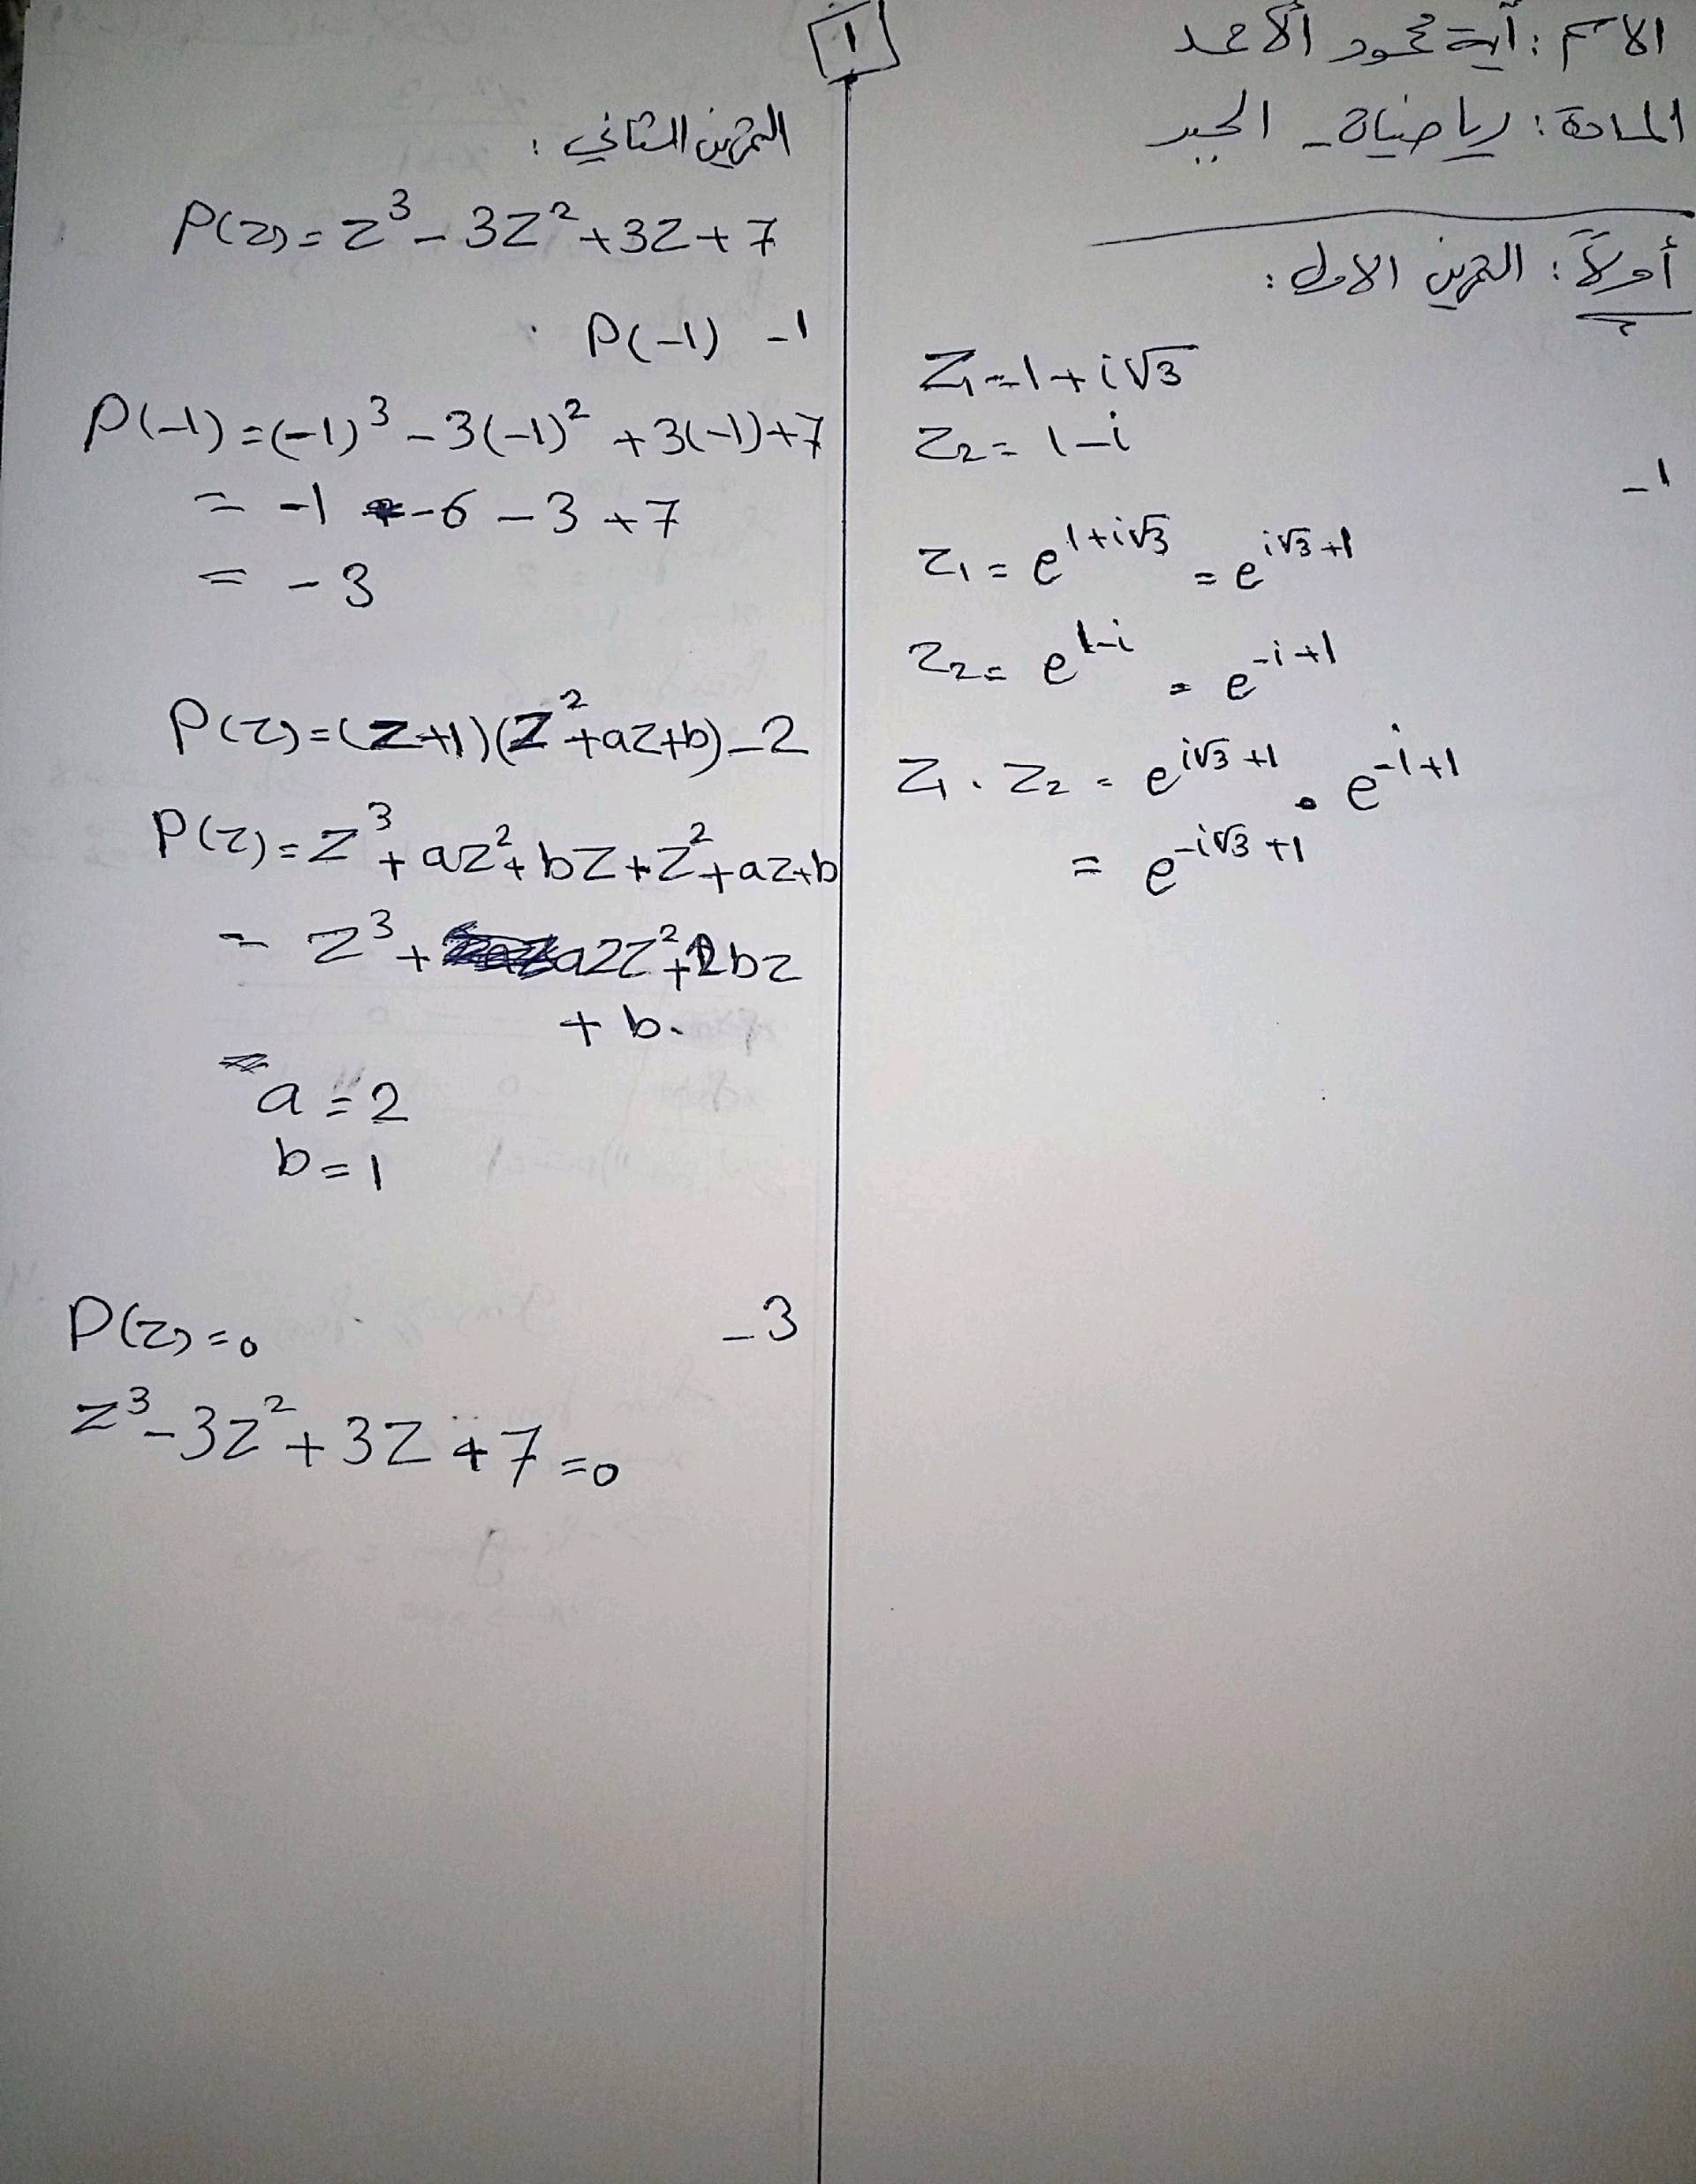 1
الاسم : آية محمود الأحمد
المادة : رياضيات - الجبر
أولاً : التمرين الاول :
Z₁ = 1 + i√3
Z₂ = 1 - i
-1
Z₁ = e^{1+i√3} = e^{i√3+1}
Z₂ = e^{1-i} = e^{-i+1}
Z₁ . Z₂ = e^{i√3+1} . e^{-i+1}
= e^{-i√3+1}
التمرين الثاني :
P(z) = z³ - 3z² + 3z + 7
P(-1) -1
P(-1) = (-1)³ - 3(-1)² + 3(-1) + 7
= -1 -6 - 3 + 7
= - 3
P(z) = (z+1)(z² + az + b) -2
P(z) = z³ + az² + bz + z² + az + b
= z³ + a2z² + 2bz
+ b.
a = 2
b = 1
P(z) = 0 -3
z³ - 3z² + 3z + 7 = 0